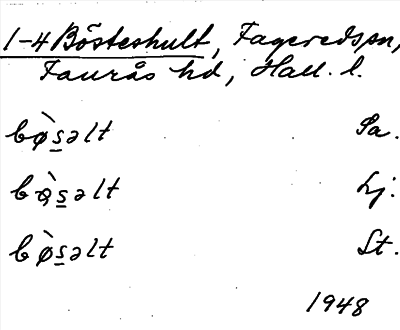 1-4 Bösteshult, Fageredspn,
Faurås hd, Hall. l.
bø̀s̲əlt Sa.
bø̀s̲əlt Lj.
bø̀s̲əlt St.
1948